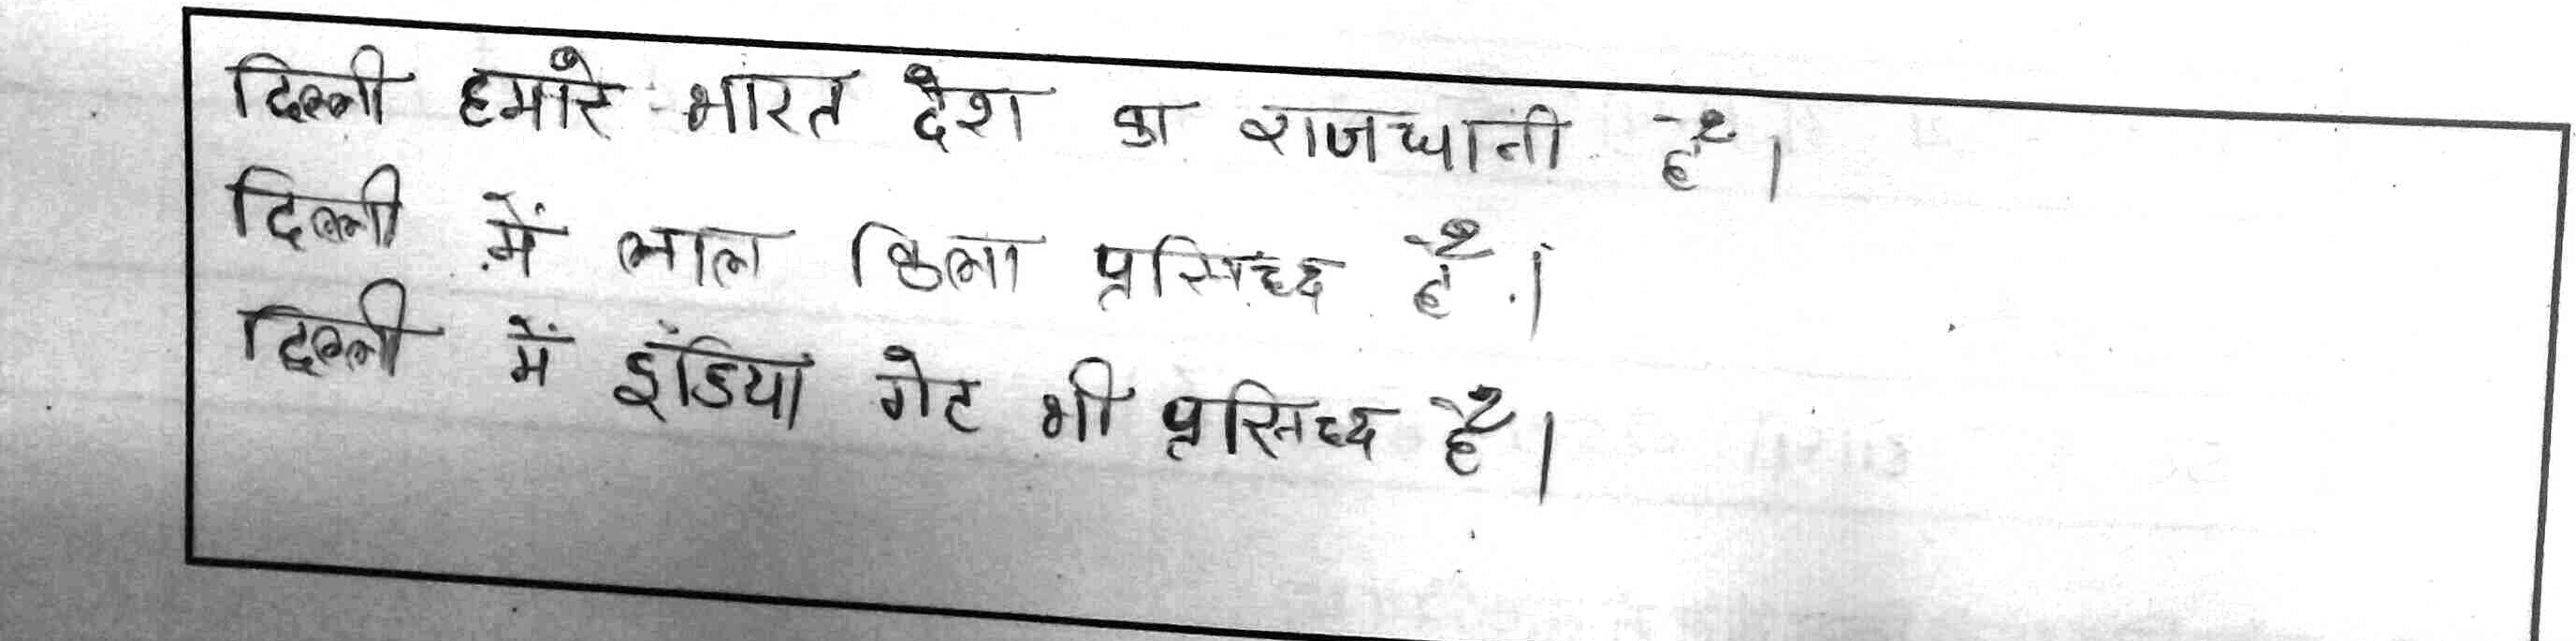 दिल्ली हमारे भारत देश का राजधानी है।
दिल्ली में लाल किला प्रसिध्द है।
दिल्ली में इंडिया गेट भी प्रसिध्द है।